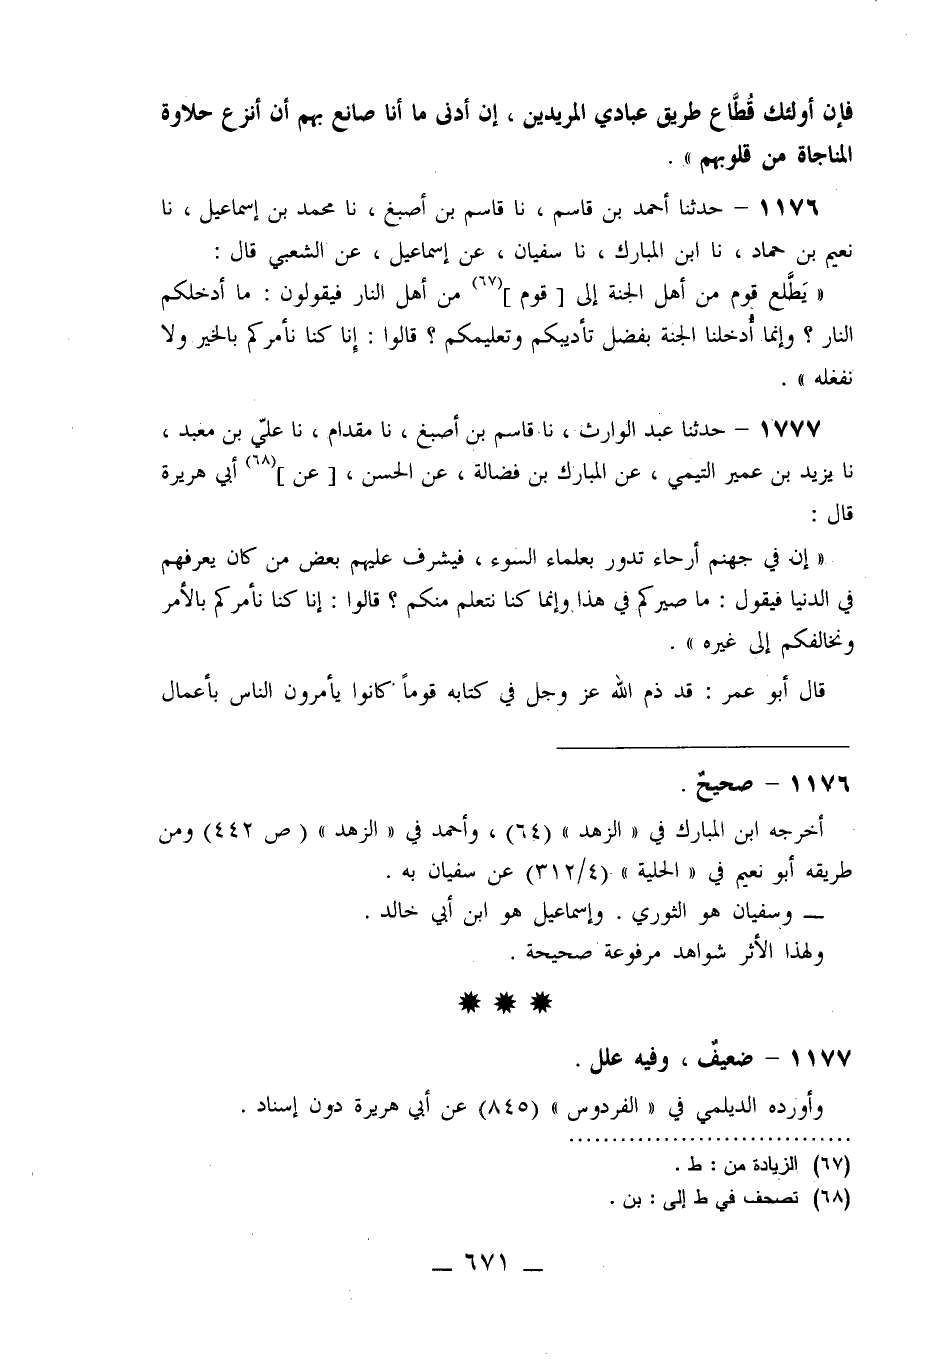 فإن أولئك قُطَّاع طريق عبادي المريدين ، إن أدنى ما أنا صانع بهم أن أنزع حلاوة
المناجاة من قلوبهم » .
١١٧٦ – حدثنا أحمد بن قاسم ، نا قاسم بن أصبغ ، نا محمد بن إسماعيل ، نا
نعيم بن حماد ، نا ابن المبارك ، نا سفيان ، عن إسماعيل ، عن الشعبي قال :
« يَطَّلع قوم من أهل الجنة إلى [ قوم ](٦٧) من أهل النار فيقولون : ما أدخلكم
النار ؟ وإنما أُدخلنا الجنة بفضل تأديبكم وتعليمكم ؟ قالوا : إنا كنا نأمركم بالخير ولا
نفعله » .
١٧٧٧ – حدثنا عبد الوارث ، نا قاسم بن أصبغ ، نا مقدام ، نا عليّ بن معبد ،
نا يزيد بن عمير التيمي ، عن المبارك بن فضالة ، عن الحسن ، [ عن ](٦٨) أبي هريرة
قال :
« إن في جهنم أرحاء تدور بعلماء السوء ، فيشرف عليهم بعض من كان يعرفهم
في الدنيا فيقول : ما صيركم في هذا وإنما كنا نتعلم منكم ؟ قالوا : إنا كنا نأمركم بالأمر
ونخالفكم إلى غيره » .
قال أبو عمر : قد ذم الله عز وجل في كتابه قوماً كانوا يأمرون الناس بأعمال
١١٧٦ – صحيحٌ .
أخرجه ابن المبارك في « الزهد » (٦٤) ، وأحمد في « الزهد » ( ص ٤٤٢) ومن
طريقه أبو نعيم في « الحلية » (٣١٢/٤) عن سفيان به .
— وسفيان هو الثوري . وإسماعيل هو ابن أبي خالد .
ولهذا الأثر شواهد مرفوعة صحيحة .
١١٧٧ – ضعيفٌ ، وفيه علل .
وأورده الديلمي في « الفردوس » (٨٤٥) عن أبي هريرة دون إسناد .
(٦٧) الزيادة من : ط .
(٦٨) تصحف في ط إلى : بن .
— ٦٧١ —